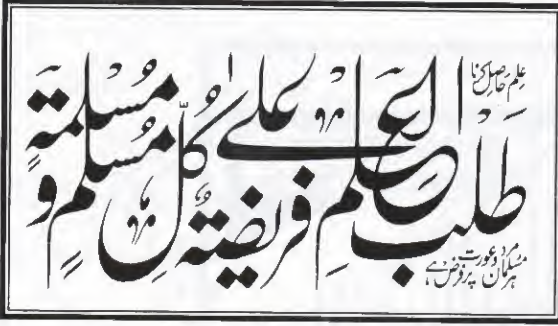 طَلَبُ العِلْمِ فَرِيضَةٌ عَلٰى كُلِّ مُسْلِمٍ وَ مُسْلِمَةٍ
علم حاصل کرنا
ہر مسلمان مرد و عورت پر فرض ہے